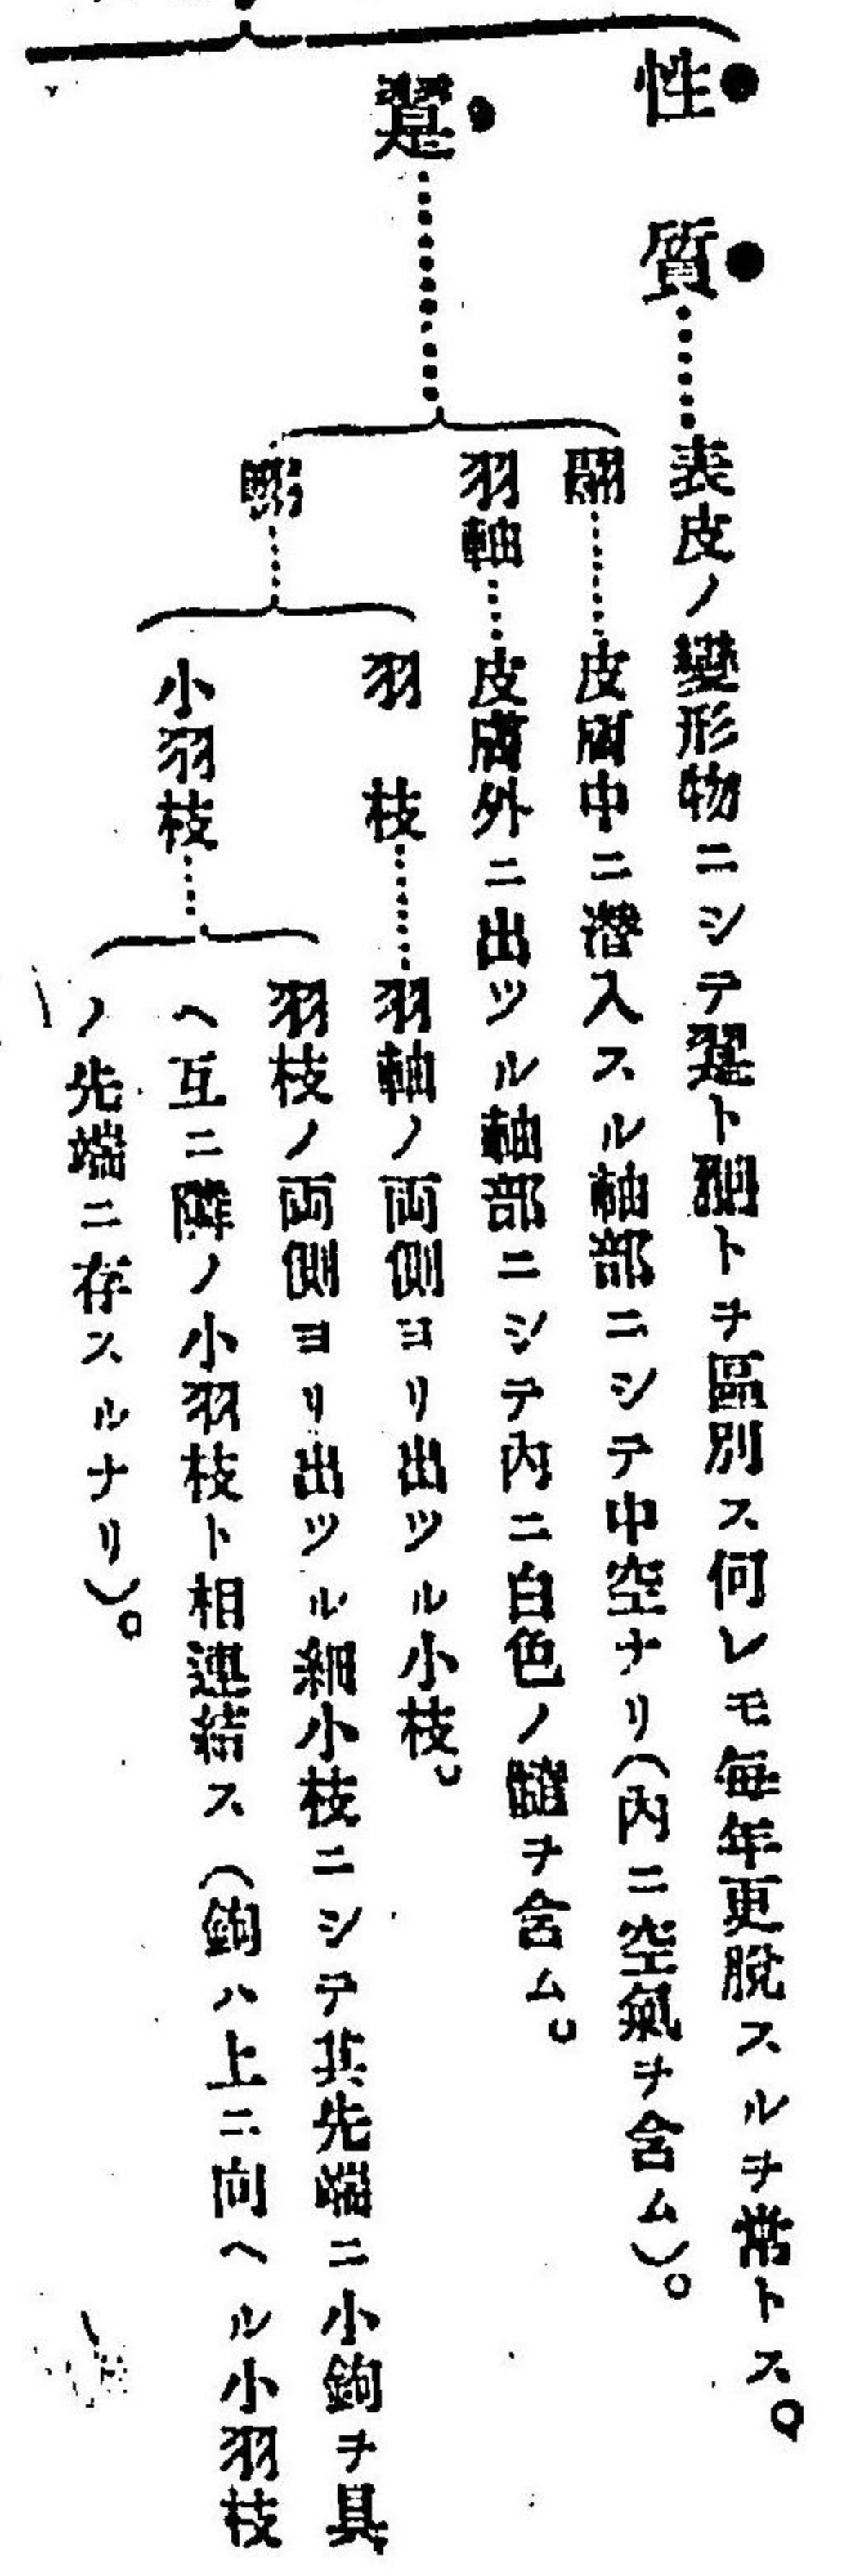 性質……表皮ノ變形物ニシテ翨トトヲ區別ス何レモ毎年更脫スルヲ常トス。
翨
翮……皮膚中ニ潛入スル軸部ニシテ中空ナリ(內ニ空氣ヲ含ム)。
羽軸……皮膚外ニ出ツル軸部ニシテ內ニ白色ノ髓ヲ含ム。
羽枝……羽軸ノ両側ヨリ出ツル小枝。
小羽枝……
羽枝ノ両側ヨリ出ツル細小枝ニシテ其先端ニ小鉤ヲ具
ヘ互ニ隣ノ小羽枝ト相連結ス(鉤ハ上ニ向ヘル小羽枝
ノ先端ニ存スルナリ)。